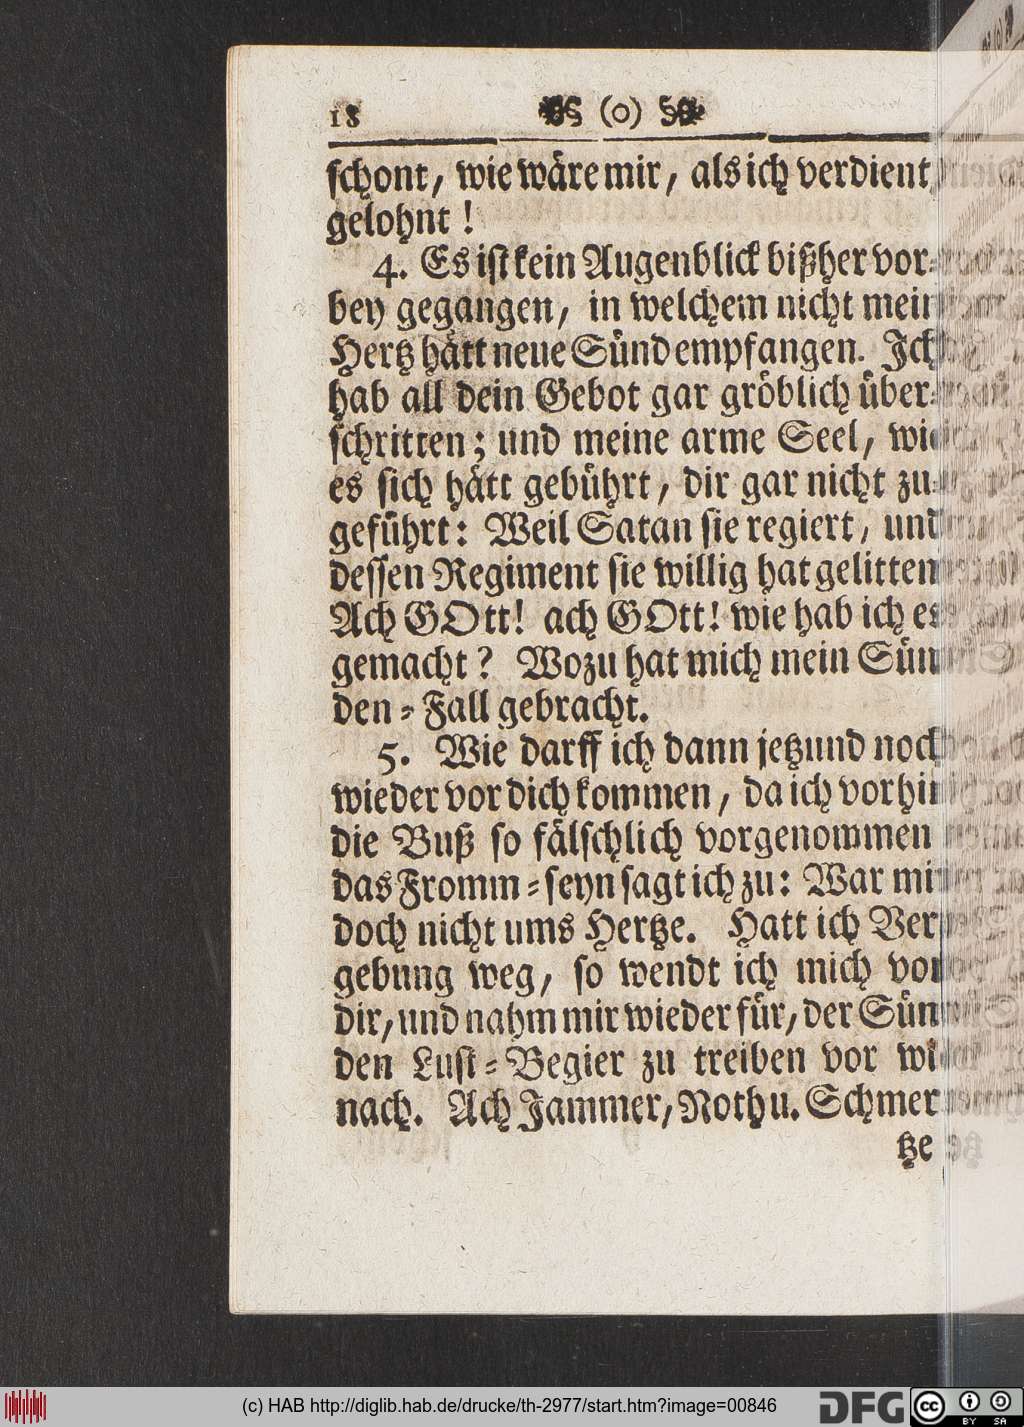 18 (o)
schont, wie wäre mir, als ich verdient
gelohnt!
4. Es ist kein Augenblick bißher vor-
bey gegangen, in welchem nicht mein
Hertz hätt neue Sünd empfangen. Ich
hab all dein Gebot gar gröblich über-
schritten; und meine arme Seel, wie
es sich hätt gebührt, dir gar nicht zu-
geführt: Weil Satan sie regiert, und
dessen Regiment sie willig hat gelitten
Ach GOtt! ach GOtt! wie hab ich es
gemacht? Wozu hat mich mein Sün
den-Fall gebracht.
5. Wie darff ich dann jetzund noch
wieder vor dich kommen, da ich vorhin
die Buß so fälschlich vorgenommen
das Fromm-seyn sagt ich zu: War mir
doch nicht ums Hertze. Hatt ich Ver
gebung weg, so wendt ich mich von
dir, und nahm mir wieder für, der Sün
den Lust-Begier zu treiben vor wie
nach. Ach Jammer, Noth u. Schmer
tze
(c) HAB http://diglib.hab.de/drucke/th-2977/start.htm?image=00846
DFG cc BY SA